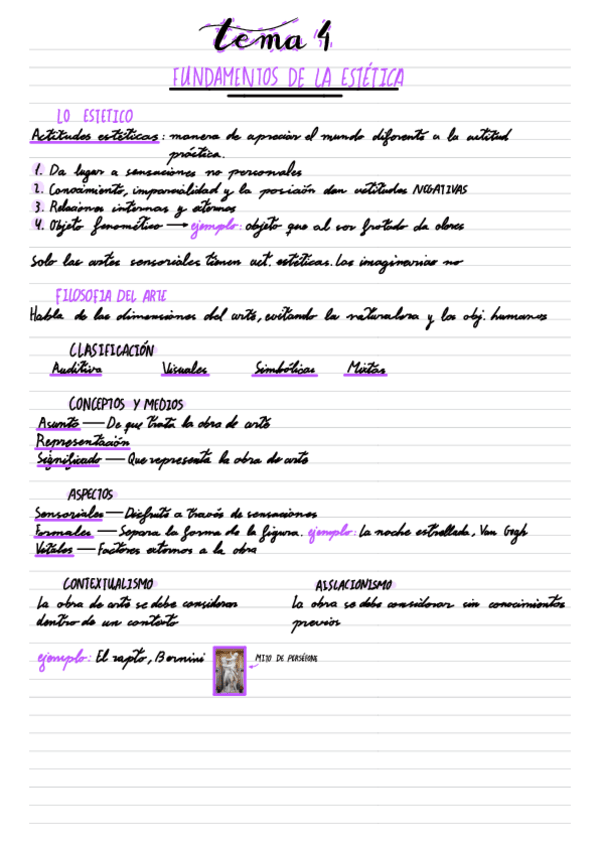 tema 4
FUNDAMENTOS DE LA ESTÉTICA
LO ESTETICO
Actitudes estéticas: manera de apreciar el mundo diferente a la actitud
práctica.
1. Da lugar a sensaciones no personales
2. Conocimiento, imparcialidad y la posición dan actitudes NEGATIVAS
3. Relaciones internas y externas
4. Objeto fenomético → ejemplo: objeto que al ser frotado da olores
Solo las artes sensoriales tienen act. estéticas. Las imaginarias no
FILOSOFIA DEL ARTE
Habla de las dimensiones del arte, evitando la naturaleza y los obj. humanos
CLASIFICACIÓN
Auditiva Visuales Simbólicas Mixtas
CONCEPTOS Y MEDIOS
Asunto — De que trata la obra de arte
Representación
Significado — Que representa la obra de arte
ASPECTOS
Sensoriales — Disfruta a través de sensaciones
Formales — Separa la forma de la figura. ejemplo: La noche estrellada, Van Gogh
Vitales — Factores externos a la obra
CONTEXTUALISMO AISLACIONISMO
La obra de arte se debe considerar La obra se debe considerar sin conocimientos
dentro de un contexto previos
ejemplo: El rapto, Bernini MITO DE PERSÉFONE